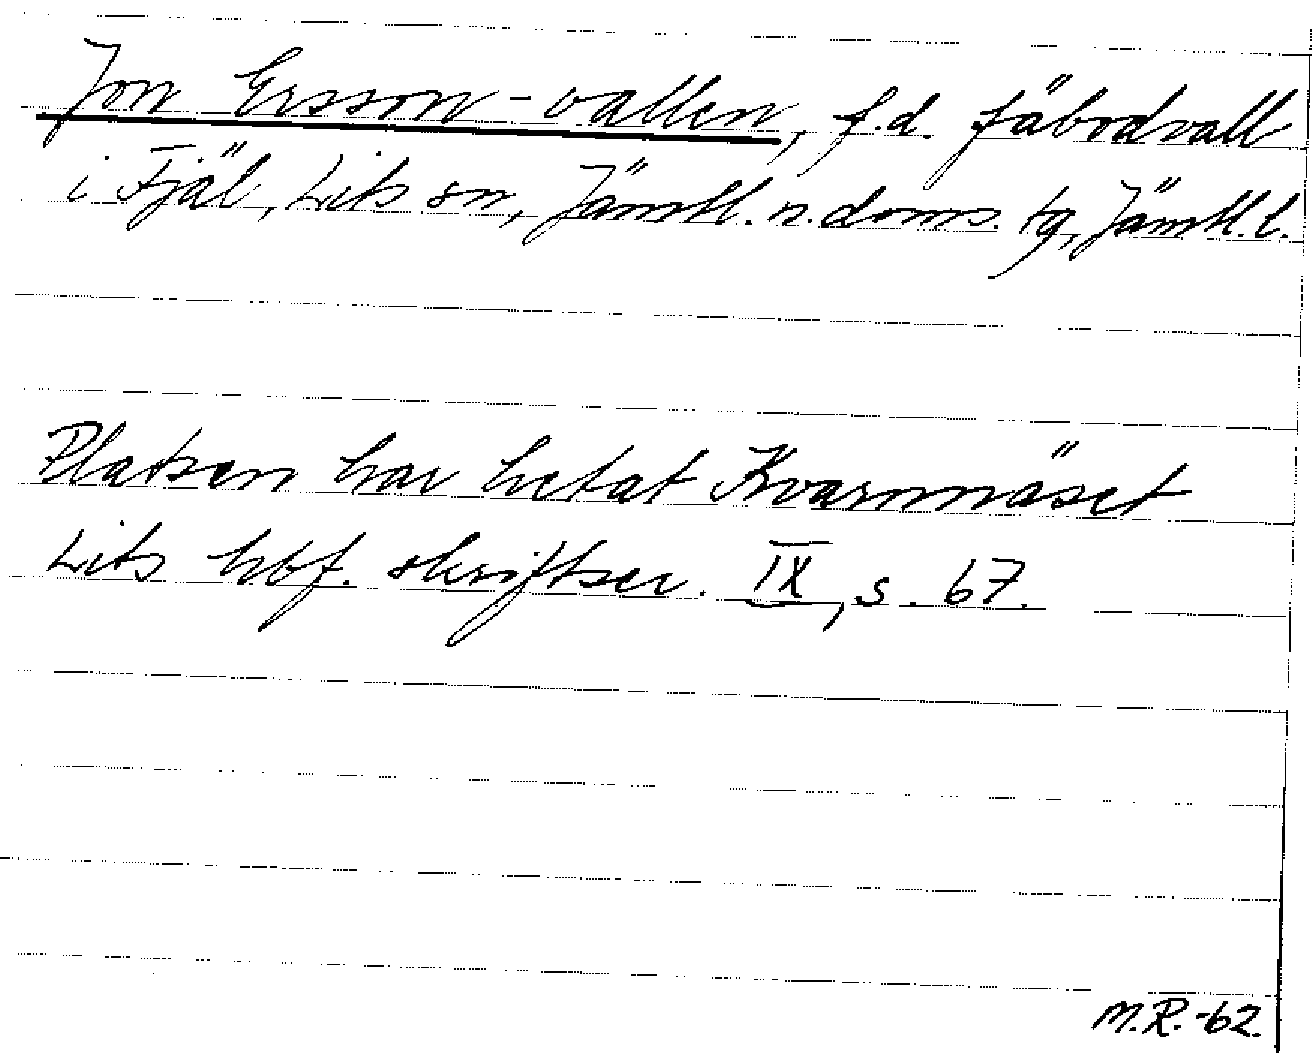 Jon Ersson-vallen, f.d. fäbodvall
i Fjäl, Lits sn, Jämtl. n. doms. tg, Jämtl. l.
Platsen har hetat Kvarnnäset
Lits hbf. skriftser. IX, s. 67.
M.R.-62.